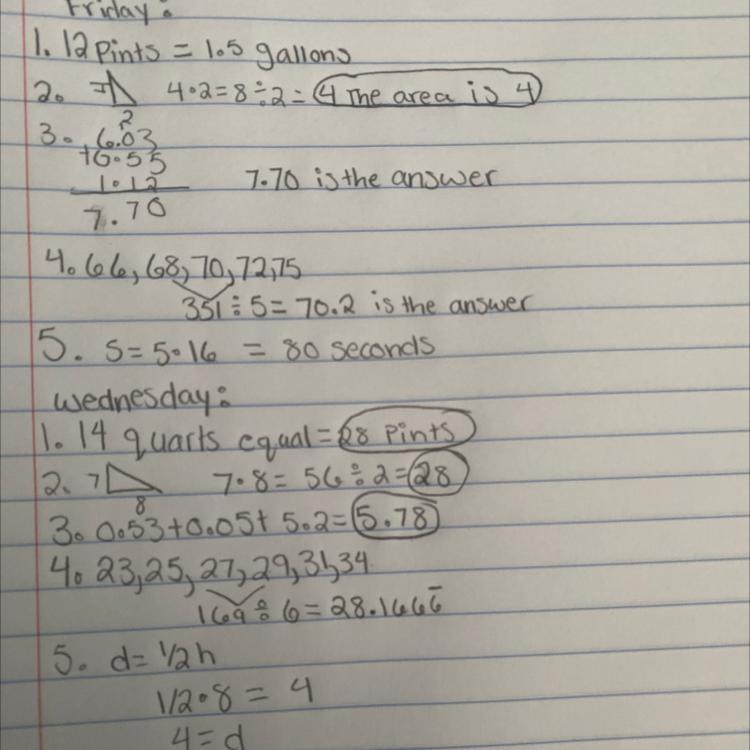 Friday:
1. 12 pints = 1.5 gallons
2. 4 2 4·2=8÷2= 4 The area is 4
3. 6.03
+0.55
1.12
7.70 7.70 is the answer
4. 66, 68, 70, 72, 75
351 ÷ 5 = 70.2 is the answer
5. S = 5·16 = 80 seconds
Wednesday:
1. 14 quarts equal = 28 pints
2. 7 8 7·8= 56÷2= 28
3. 0.53+0.05+ 5.2= 5.78
4. 23, 25, 27, 29, 31, 34
169 ÷ 6 = 28.1666̅
5. d= 1/2h
1/2·8 = 4
4=d